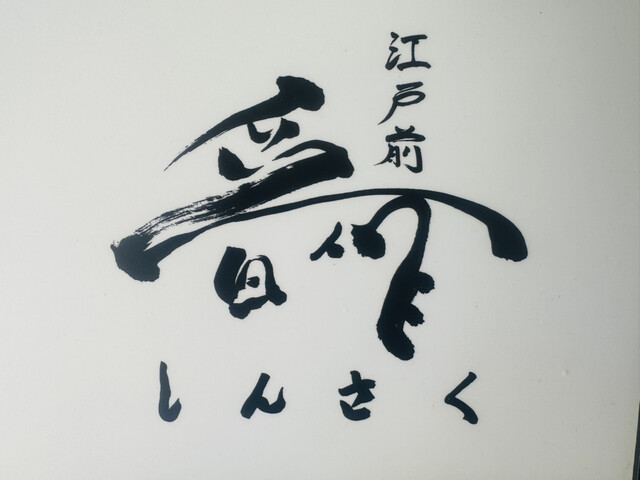 江戸前
晋作
しんさく